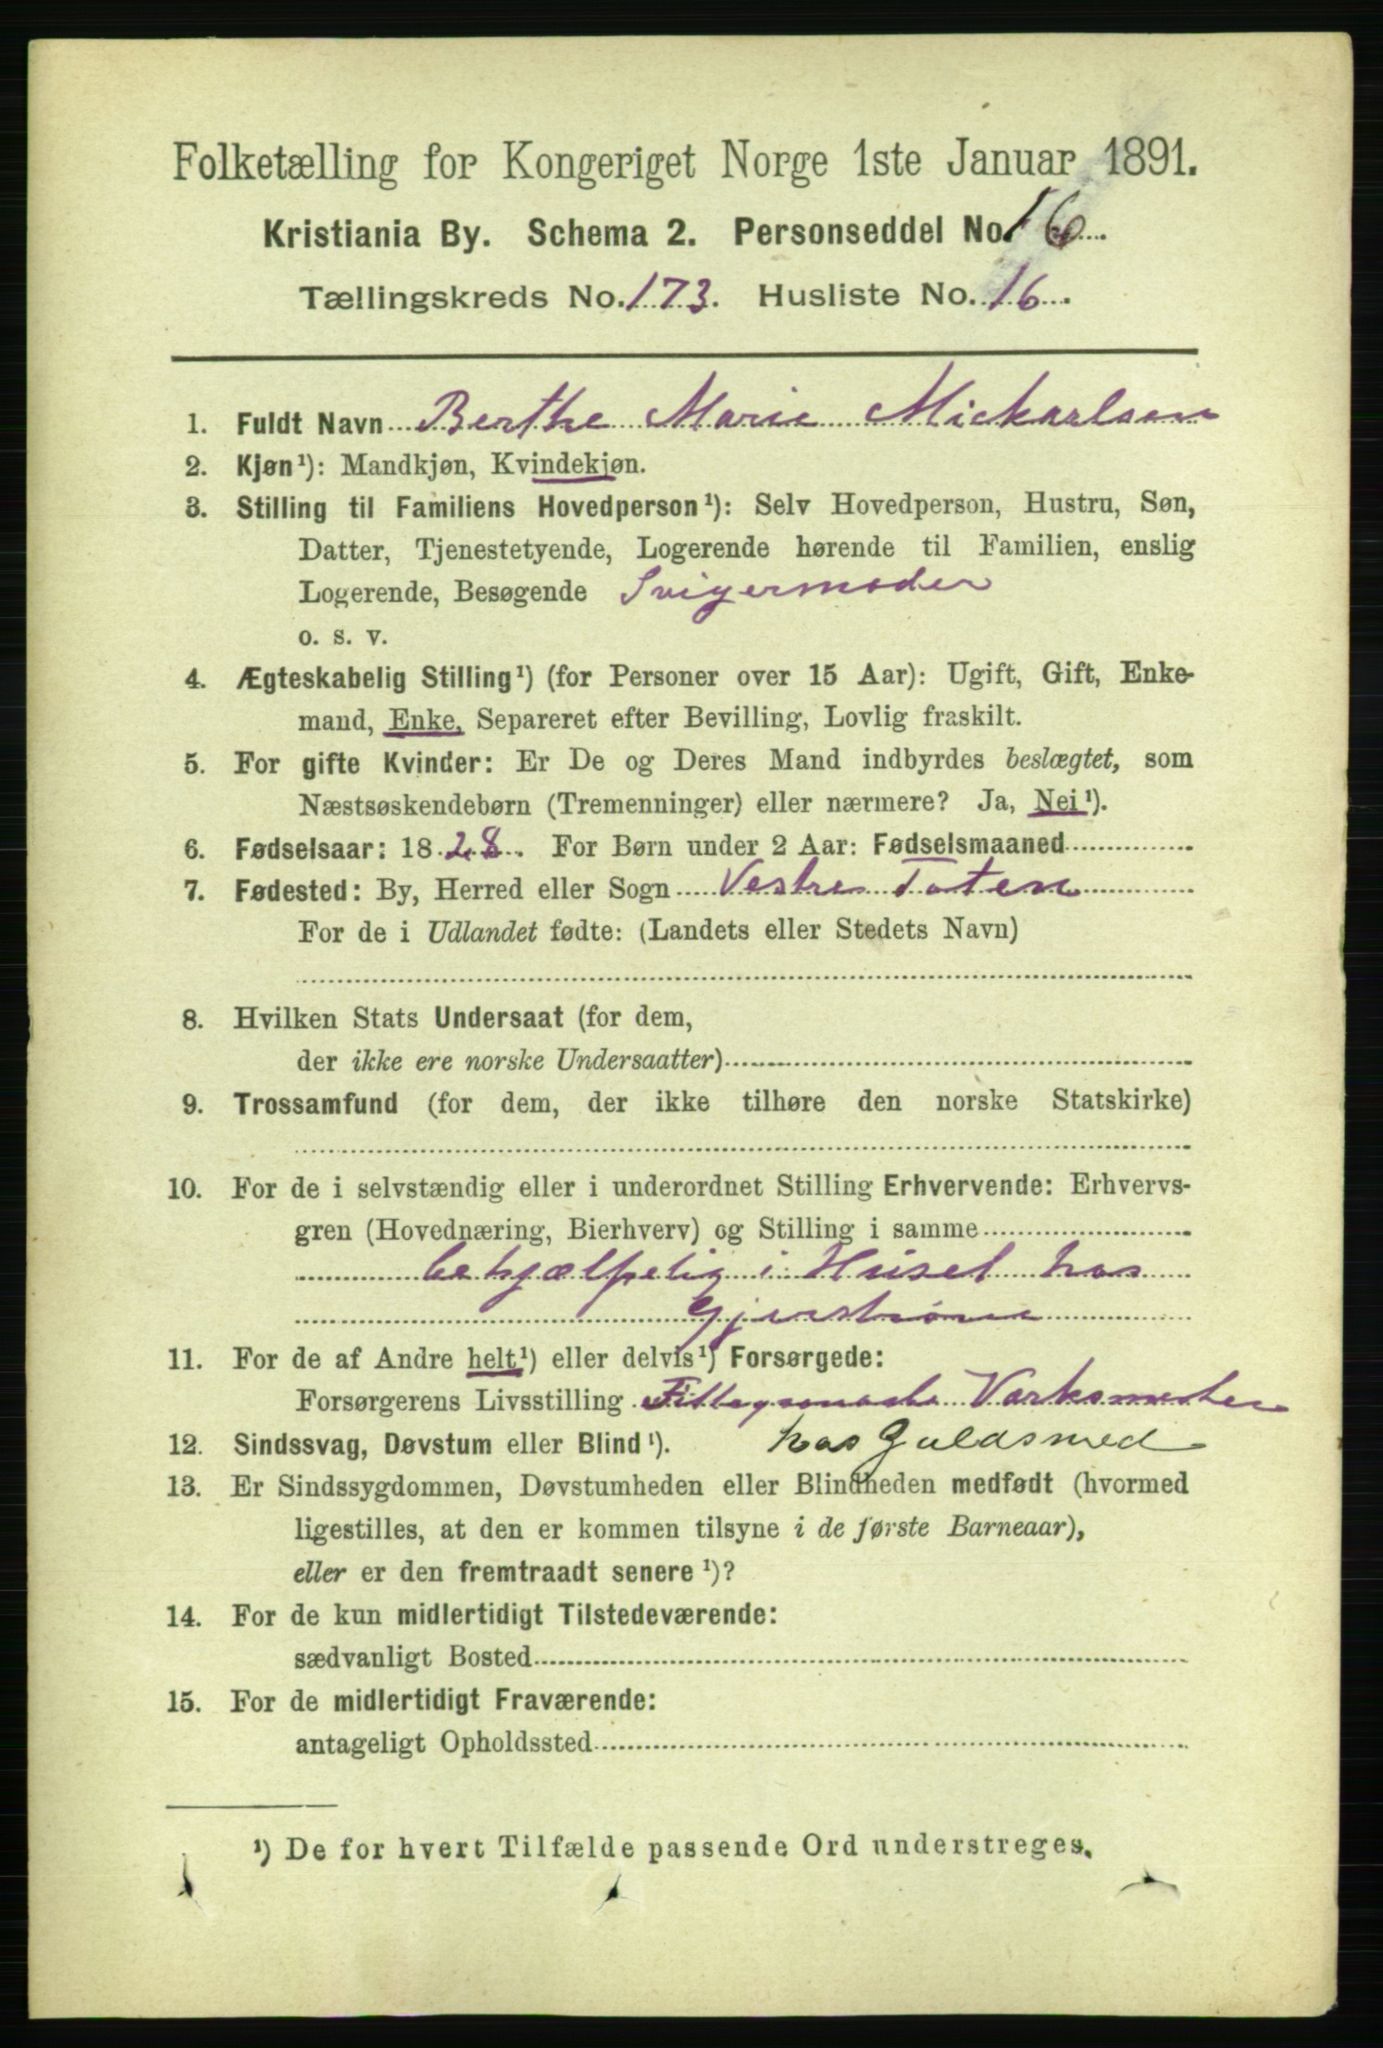 Folketælling for Kongeriget Norge 1ste Januar 1891.
Kristiania By. Schema 2. Personseddel No. 16
Tællingskreds No. 173. Husliste No. 16.
1. Fuldt Navn Berthe Marie Mickaelsen
2. Kjøn¹): Mandkjøn, Kvindekjøn.
3. Stilling til Familiens Hovedperson¹): Selv Hovedperson, Hustru, Søn,
Datter, Tjenestetyende, Logerende hørende til Familien, enslig
Logerende, Besøgende Svigermoder
o. s. v.
4. Ægteskabelig Stilling¹) (for Personer over 15 Aar): Ugift, Gift, Enke-
mand, Enke, Separeret efter Bevilling, Lovlig fraskilt.
5. For gifte Kvinder: Er De og Deres Mand indbyrdes beslægtet, som
Næstsøskendebørn (Tremenninger) eller nærmere? Ja, Nei¹).
6. Fødselsaar: 1828. For Børn under 2 Aar: Fødselsmaaned
7. Fødested: By, Herred eller Sogn Vestre Toten
For de i Udlandet fødte: (Landets eller Stedets Navn)
8. Hvilken Stats Undersaat (for dem,
der ikke ere norske Undersaatter)
9. Trossamfund (for dem, der ikke tilhøre den norske Statskirke)
10. For de i selvstændig eller i underordnet Stilling Erhvervende: Erhvervs-
gren (Hovednæring, Bierhverv) og Stilling i samme
behjælpelig i Huset hos
11. For de af Andre helt¹) eller delvis¹) Forsørgede:
Forsørgerens Livsstilling Verksmester
12. Sindssvag, Døvstum eller Blind¹). hos Guldsmed
13. Er Sindssygdommen, Døvstumheden eller Blindheden medfødt (hvormed
ligestilles, at den er kommen tilsyne i de første Barneaar),
eller er den fremtraadt senere¹)?
14. For de kun midlertidigt Tilstedeværende:
sædvanligt Bosted
15. For de midlertidigt Fraværende:
antageligt Opholdssted
¹) De for hvert Tilfælde passende Ord understreges.